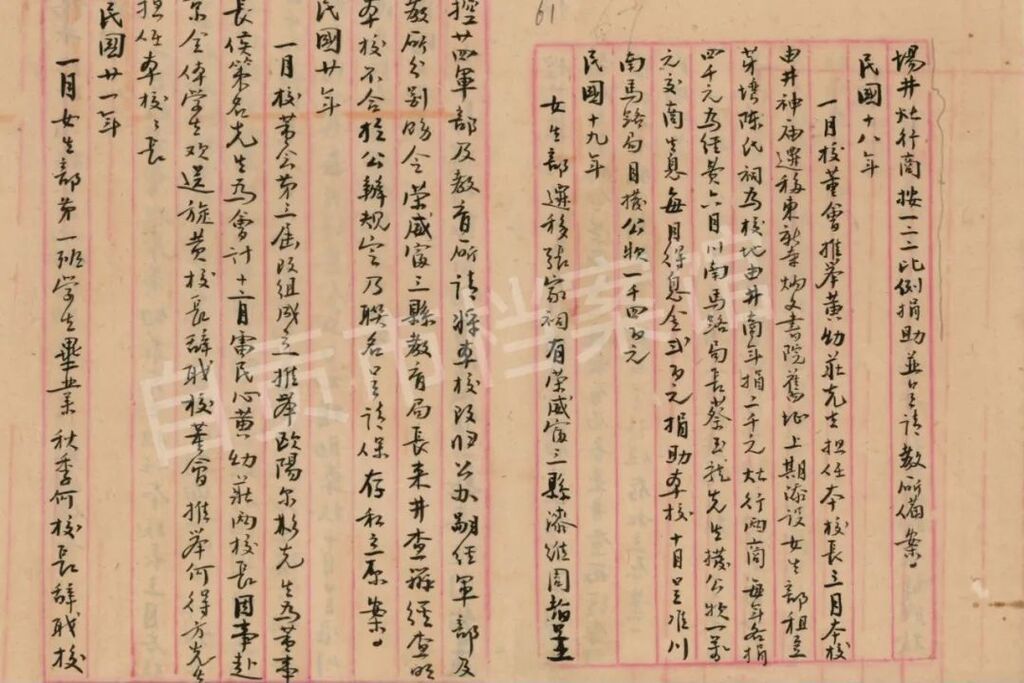 61
場井灶行商按一二二比例捐助並呈請教所備案
民國十八年
一月校董會推舉黃幼莊先生担任本校長三月本校
由井神庙遷移東新寺炳文書院舊址上期添設女生部租立
芽塘陳氏祠为校地由井商年捐二千元灶行两商每年各捐
四千元为經費六月川南馬路局長蔡玉龍先生撥公欵一萬
元交商生息每月得息金弍百元捐助本校十月呈准川
南馬路局月撥公欵一千四百元
民國十九年
女生部遷移張家祠有荣威富三縣漆維周等呈
控廿四軍部及教育所請將本校改归公办嗣经軍部及
教所分别時令荣威富三縣教育局長来井查辦经查明
本校不合於公辦規定乃联名呈请保存私立原案
民國廿年
一月校董会第三屆改组成立推举欧陽尔彬先生为董事
長侯策名先生为會计十二月雷民心黄幼莊两校長因事赴
京全体学生欢送旋黄校長辞职校董會推举何得方先生
担任本校長
民國廿一年
一月女生部第一班学生畢业秋季何校長辞职校
自贡市档案馆